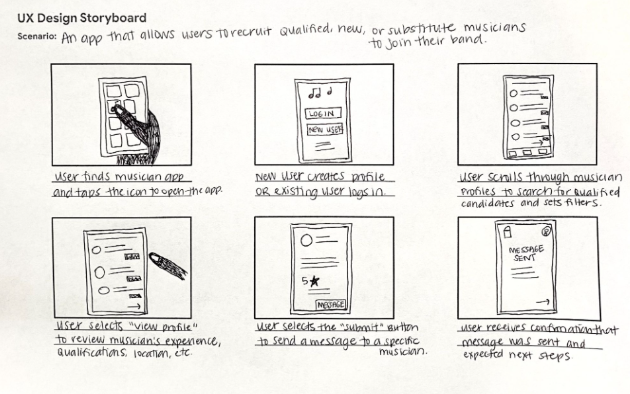 UX Design Storyboard
Scenario: An app that allows users to recruit qualified, new, or substitute musicians
to join their band.
LOG IN
NEW USER
User finds musician app
and taps the icon to open the app.
New User creates profile
OR existing user logs in.
User scrolls through musician
profiles to search for qualified
candidates and sets filters.
5★
MESSAGE
MESSAGE
SENT
User selects "view profile"
to review musician's experience,
qualifications, location, etc.
User selects the "submit" button
to send a message to a specific
musician.
User receives confirmation that
message was sent and
expected next steps.